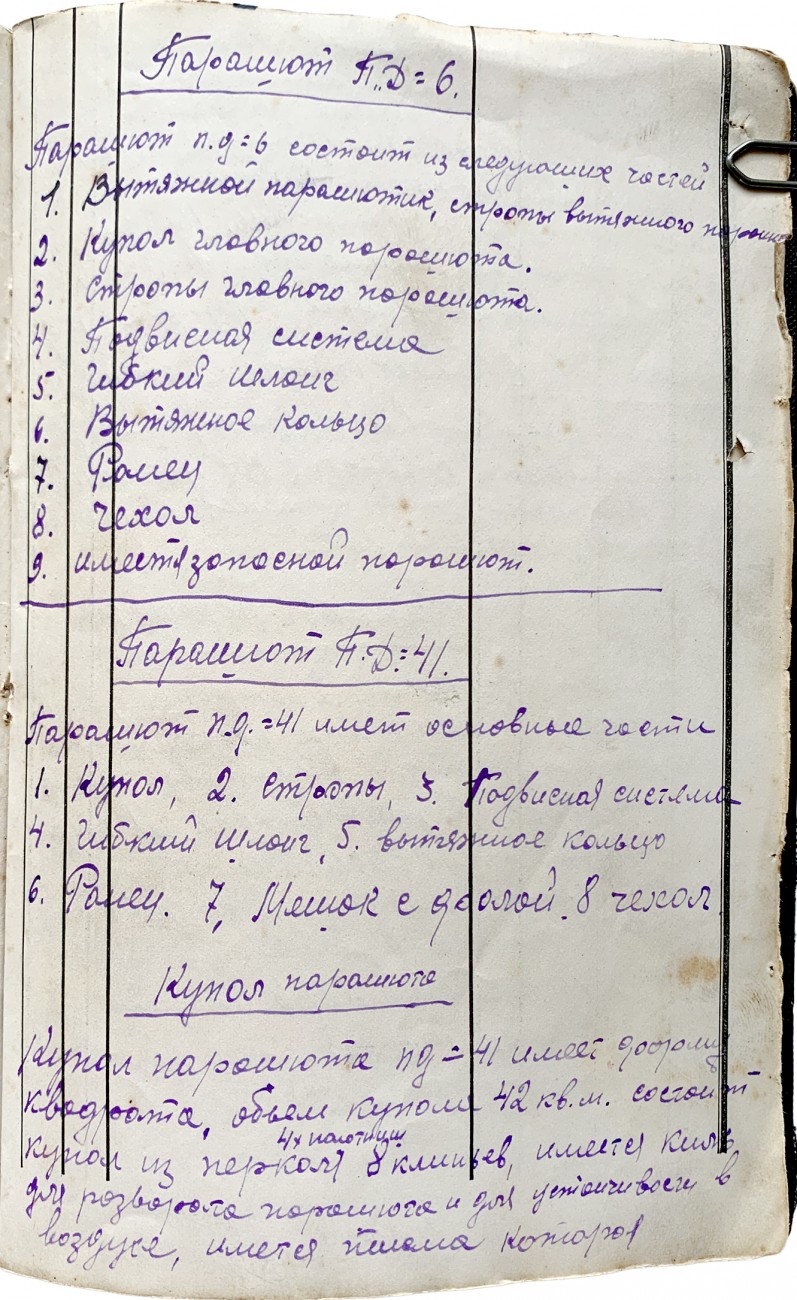 Парашют П.Д=6.
Парашют п.д=6 состоит из следующих частей
1. Вытяжной парашютик, стропы вытяжного
2. Купол главного парашюта.
3. Стропы главного парашюта.
4. Подвисная система
5. Гибкий шланг
6. Вытяжное кольцо
7. Ранец
8. Чехол
9. имеетя запасной парашют.
Парашют П.Д=41.
Парашют п.д.=41 имеет основные части
1. Купол, 2. Стропы, 3. Подвисная система
4. Гибкий шланг, 5. вытяжное кольцо
6. Ранец. 7, Мешок с 8 чехол
Купол парашюта
Купол парашюта пд=41 имеет форму
квадрата, объем купола 42 кв.м. состоит
4х полотнищ
купол из перкаля 8 клиньев, имеется киль
для розворота парашюта и для устойчивости в
воздухе, имется тесьма которая